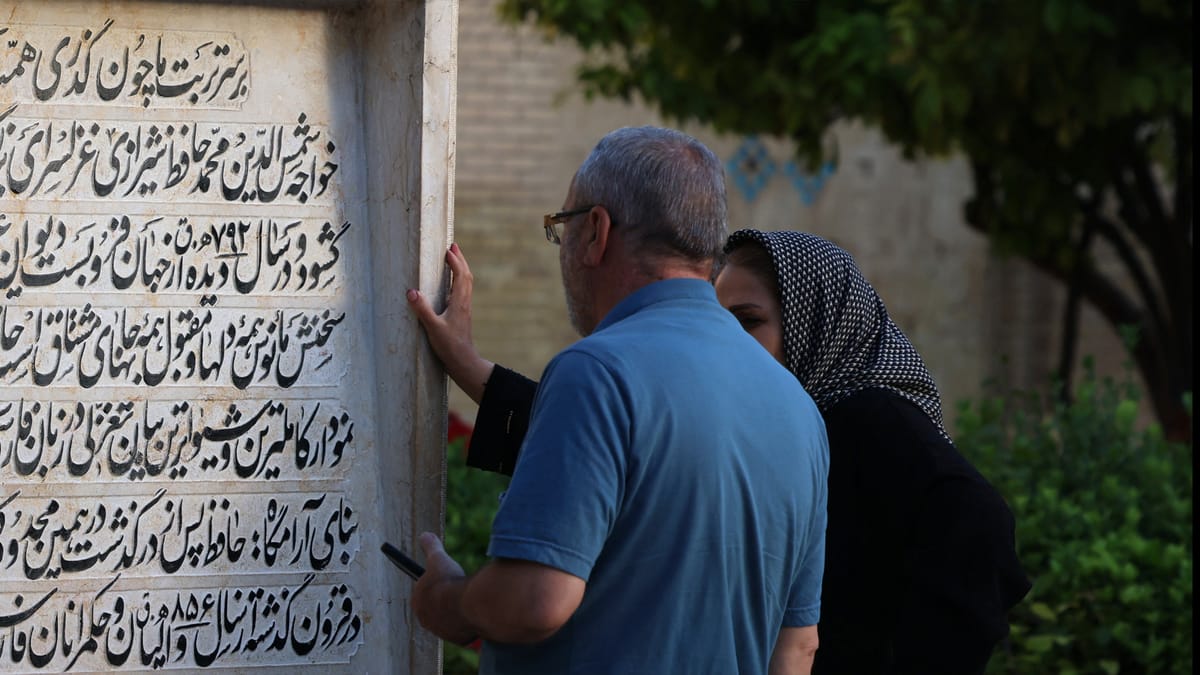 بر سر تربت ما چون گذری
خواجه شمس الدین محمد حافظ شیرازی غزلسرای
گشود و در سال ۷۹۲ هـ ق دیده از جهان فرو بست دیوان
سخنش مانوس همه دلها و مقبول همه جانهای مشتاق است
نمودار کاملترین و شیواترین بیان شعر غزلی در زبان
بنای آرامگاه: حافظ پس از درگذشت در همین
در قرون گذشته از سال ۸۵۶ هـ ق والیان و حکمرانان فارس